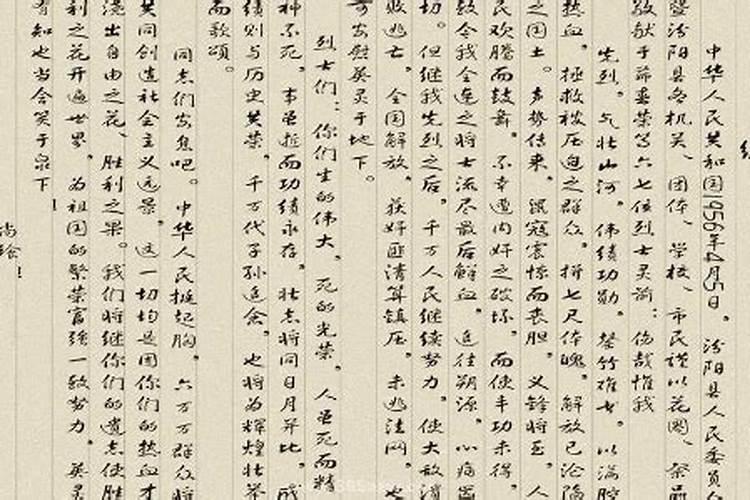 中华人民共和国1956年4月5日。汾阳县人民委员
暨汾阳县各机关、团体、学校、市民谨以花圈、祭品
敬献于蒋垂荣等六七位烈士灵前：伤哉惟我
先烈。气壮山河。伟绩功勋。罄竹难书。以满腔
热血。拯救被压迫之群众。拼七尺体魄。解放已沦陷
之国土。声势传来。贼寇震惊而丧胆。义锋将至。人
民欢腾而鼓舞。不幸遭内奸之破坏。而使丰功未得。
致令我全连之将士流尽最后鲜血。追往朔源。心痛
切。但继我先烈之后。千万人民继续努力。使大敌
败逃亡。全国解放。获奸匪清算镇压。未逃法网。
言发慰英灵于地下。
烈士们：你们生的伟大。死的光荣。人虽死而精
神不死。事虽殂而功绩永存。壮志将同日月并比。
绩则与历史共荣。千万代子孙追念。也将为辉煌壮举
而歌颂。
同志们安息吧。中华人民挺起胸。六万万群众将
共同创造社会主义远景。这一切均是因你们的热血才
浇出自由之花、胜利之果。我们将继你们的遗志使胜
利之花开遍世界。为祖国的繁荣富强一致努力。英灵
有知也当含笑于泉下！
尚飨！